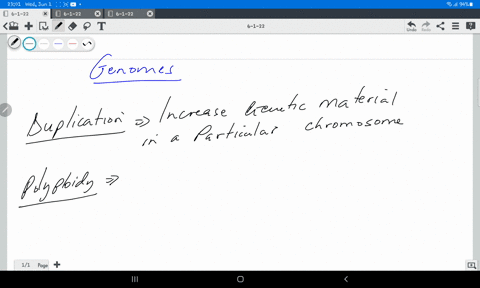 23:01 Wed, Jun 1 94%
6-1-33 6-1-33 6-1-33
6-1-33
Undo Redo
Genomes
Duplication => Increase Genetic material
in a Particular chromosome
Polyploidy =>
1/1 Page